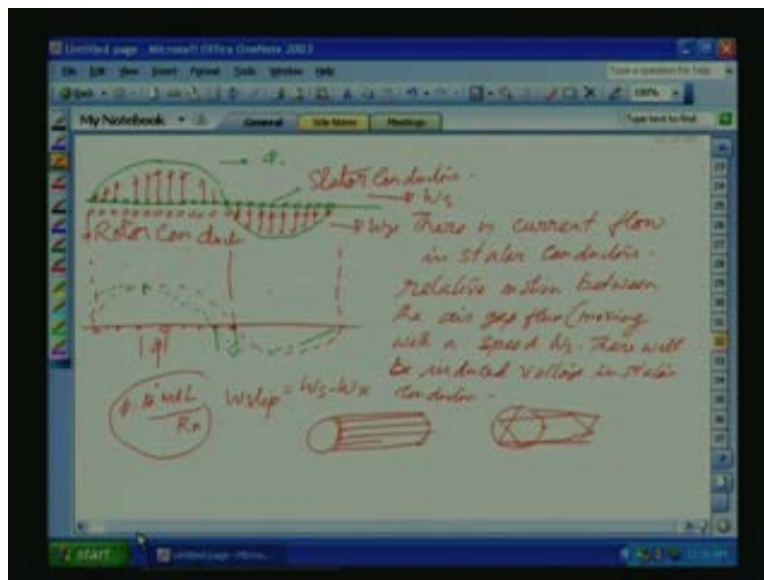 Untitled page - Microsoft Office OneNote 2003
File Edit View Insert Format Tools Window Help
Type a question for help
Back
100%
My Notebook
General
Side Notes
Meetings
Type text to find
Stator Conductor -
Ws
Rotor Conduct
There is current flow
in stator conductor -
relative motion between
the air gap flux (moving
with a speed Ws. There will
be induced voltage in stator
conductor -
Wslip = Ws - Wr
start
Untitled page - Micro...